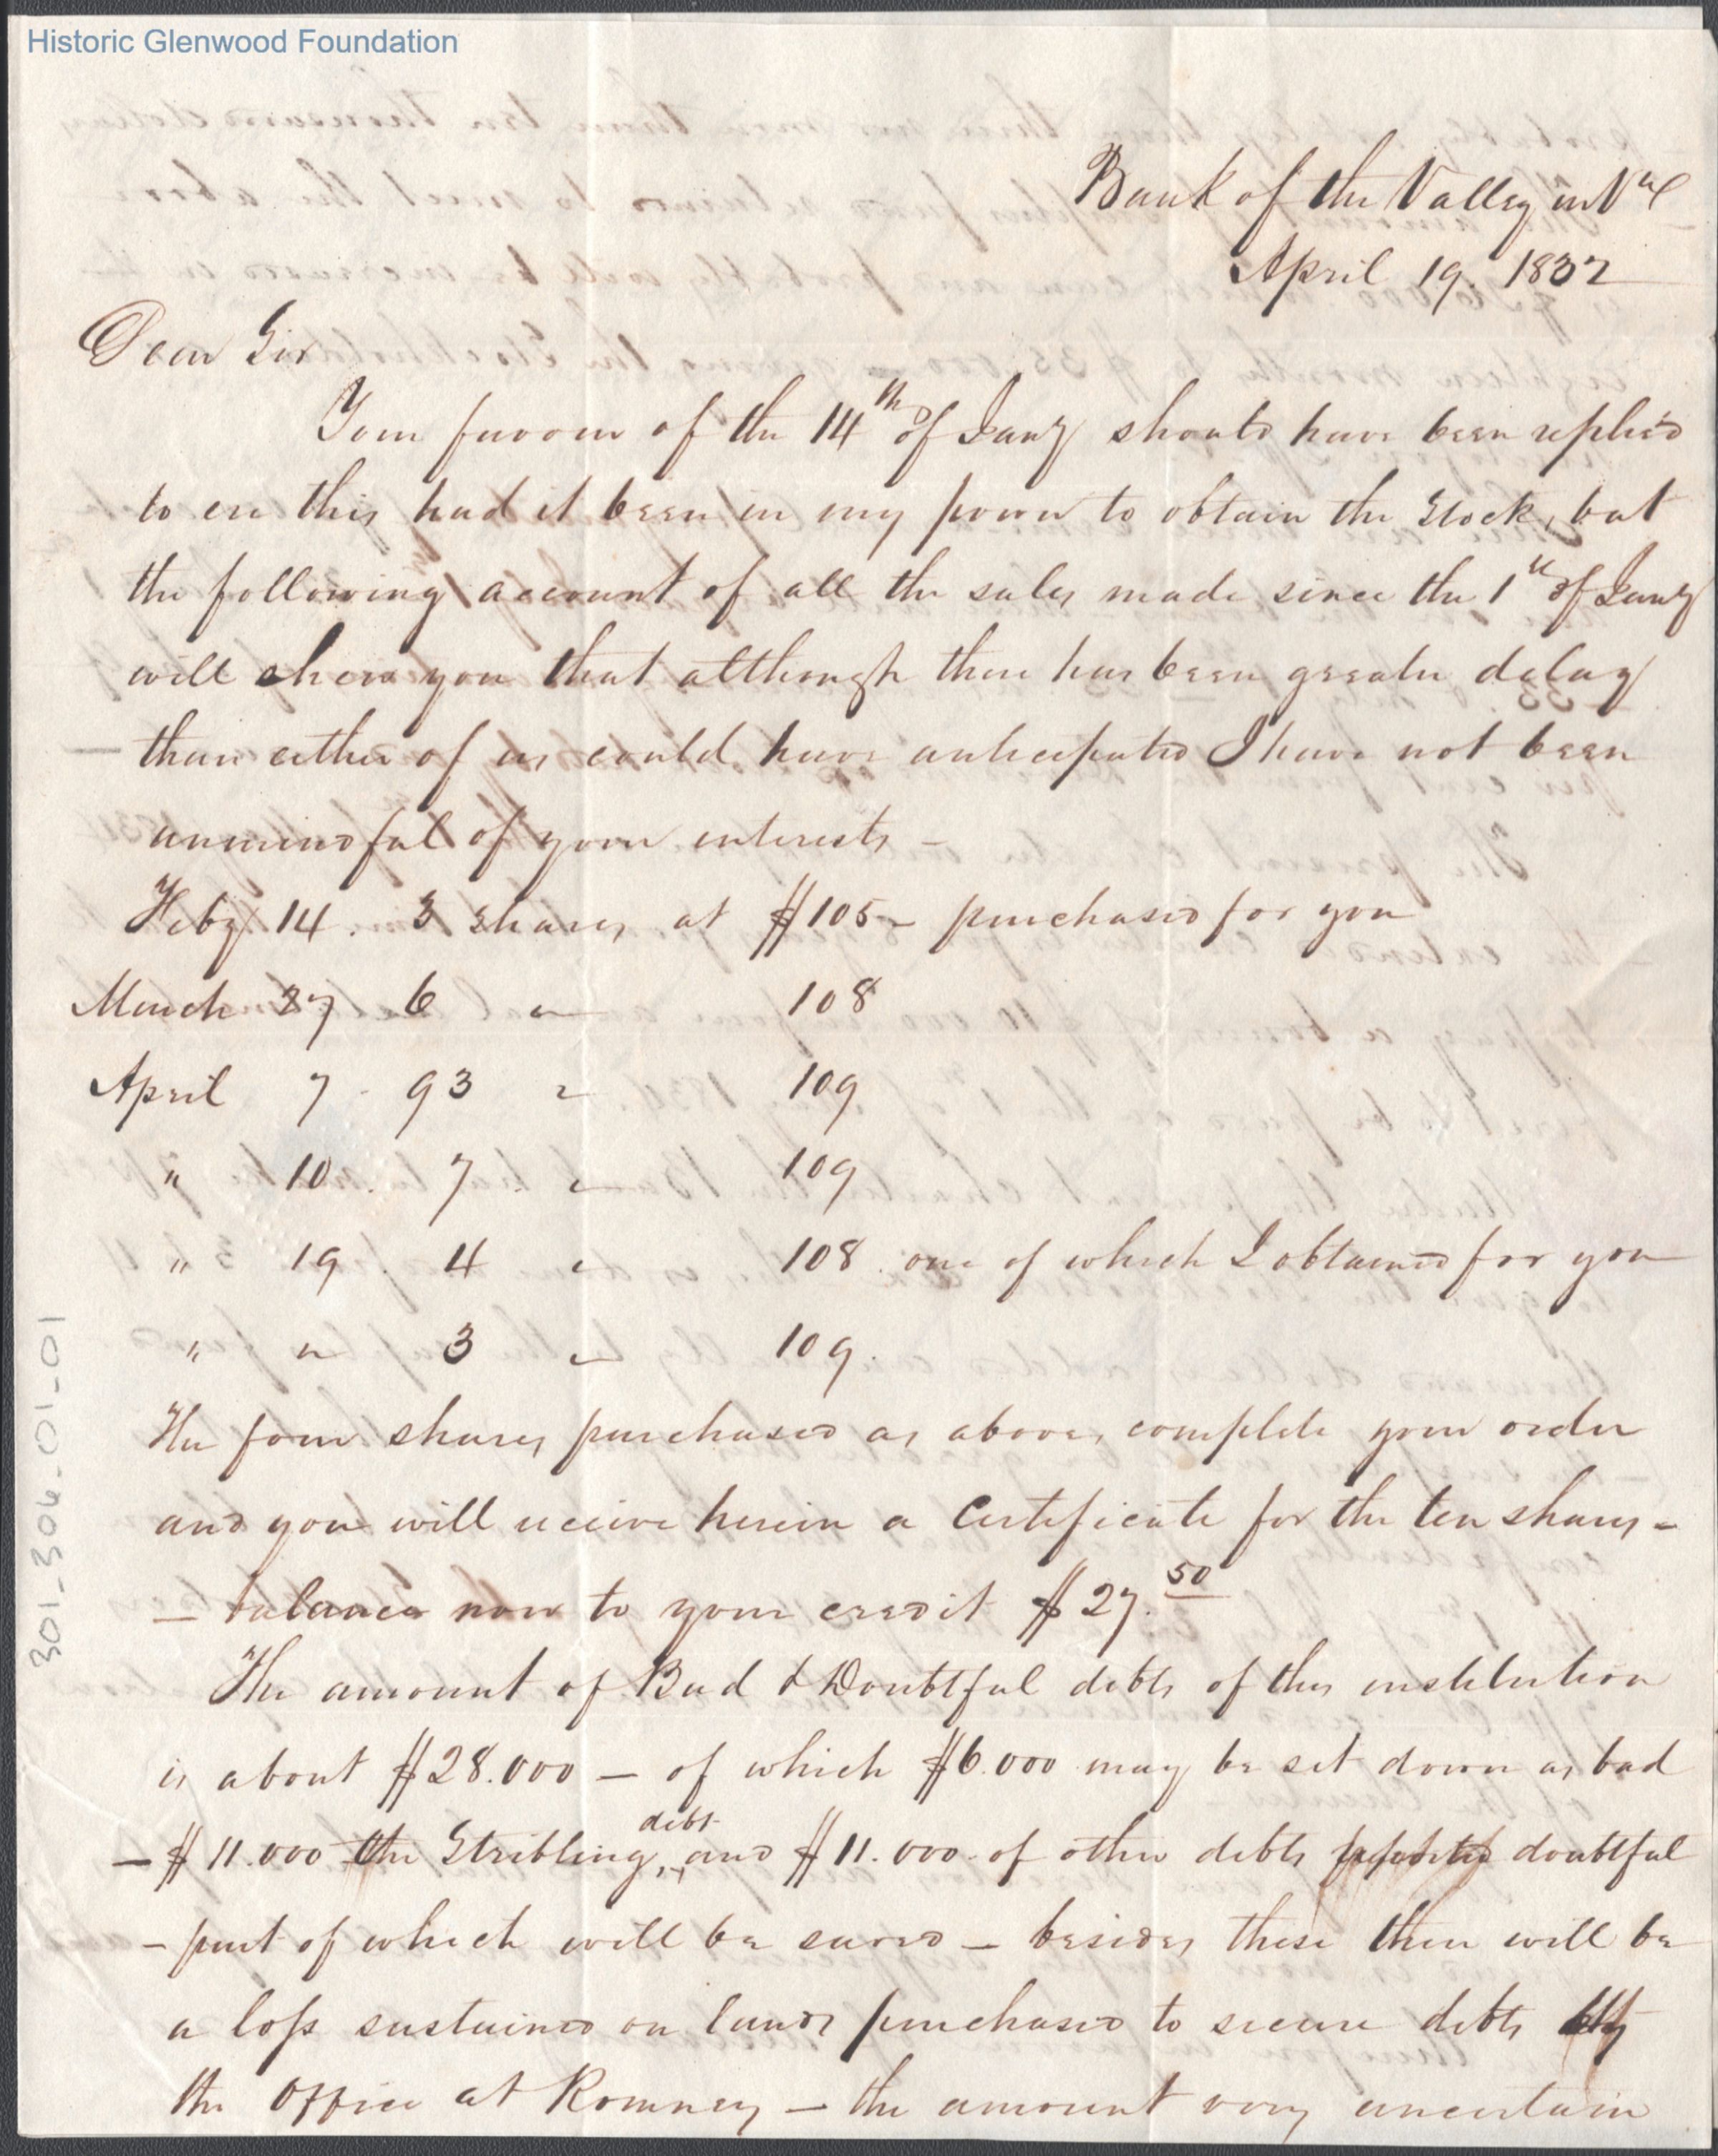 Historic Glenwood Foundation
Bank of the Valley in Va
April 19. 1832
Dear Sir
Your favour of the 14th of Jany should have been replied
to ere this had it been in my power to obtain the Stock, but
the following account of all the sales made since the 1st of Jany
will shew you that although there has been greater delay
than either of us could have anticipated I have not been
unmindful of your interests -
Feby 14. 3 shares at $105 - purchased for you
March 27 6 " 108
April 7 - 93 " 109
" 10. 7 " 109
" 19. 4 " 108. one of which I obtained for you
" " 3 " 109.
The four shares purchased as above, complete your order
and you will receive herein a Certificate for the ten shares -
- balance now to your credit $27.50
The amount of Bad & Doubtful debts of this institution
is about $28.000 - of which $6.000 may be set down as bad
- $11.000 the Stribling debt, and $11.000 of other debts reported doubtful
- part of which will be saved - besides these there will be
a loss sustained on lands purchased to secure debts
the Office at Romney - the amount very uncertain
301-306-01-01